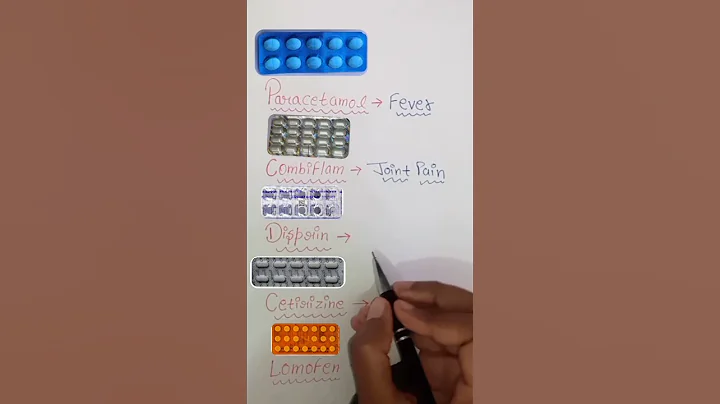 Paracetamol → Fever
Combiflam → Joint Pain
Disprin →
Cetirizine →
Lomofen